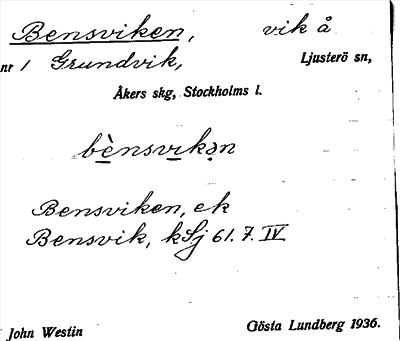 Bensviken, vik å
nr 1 Grundvik, Ljusterö sn,
Åkers skg, Stockholms l.
bènsvikən
Bensviken, ek
Bensvik, kSj 61.7.IV
John Westin Gösta Lundberg 1936.